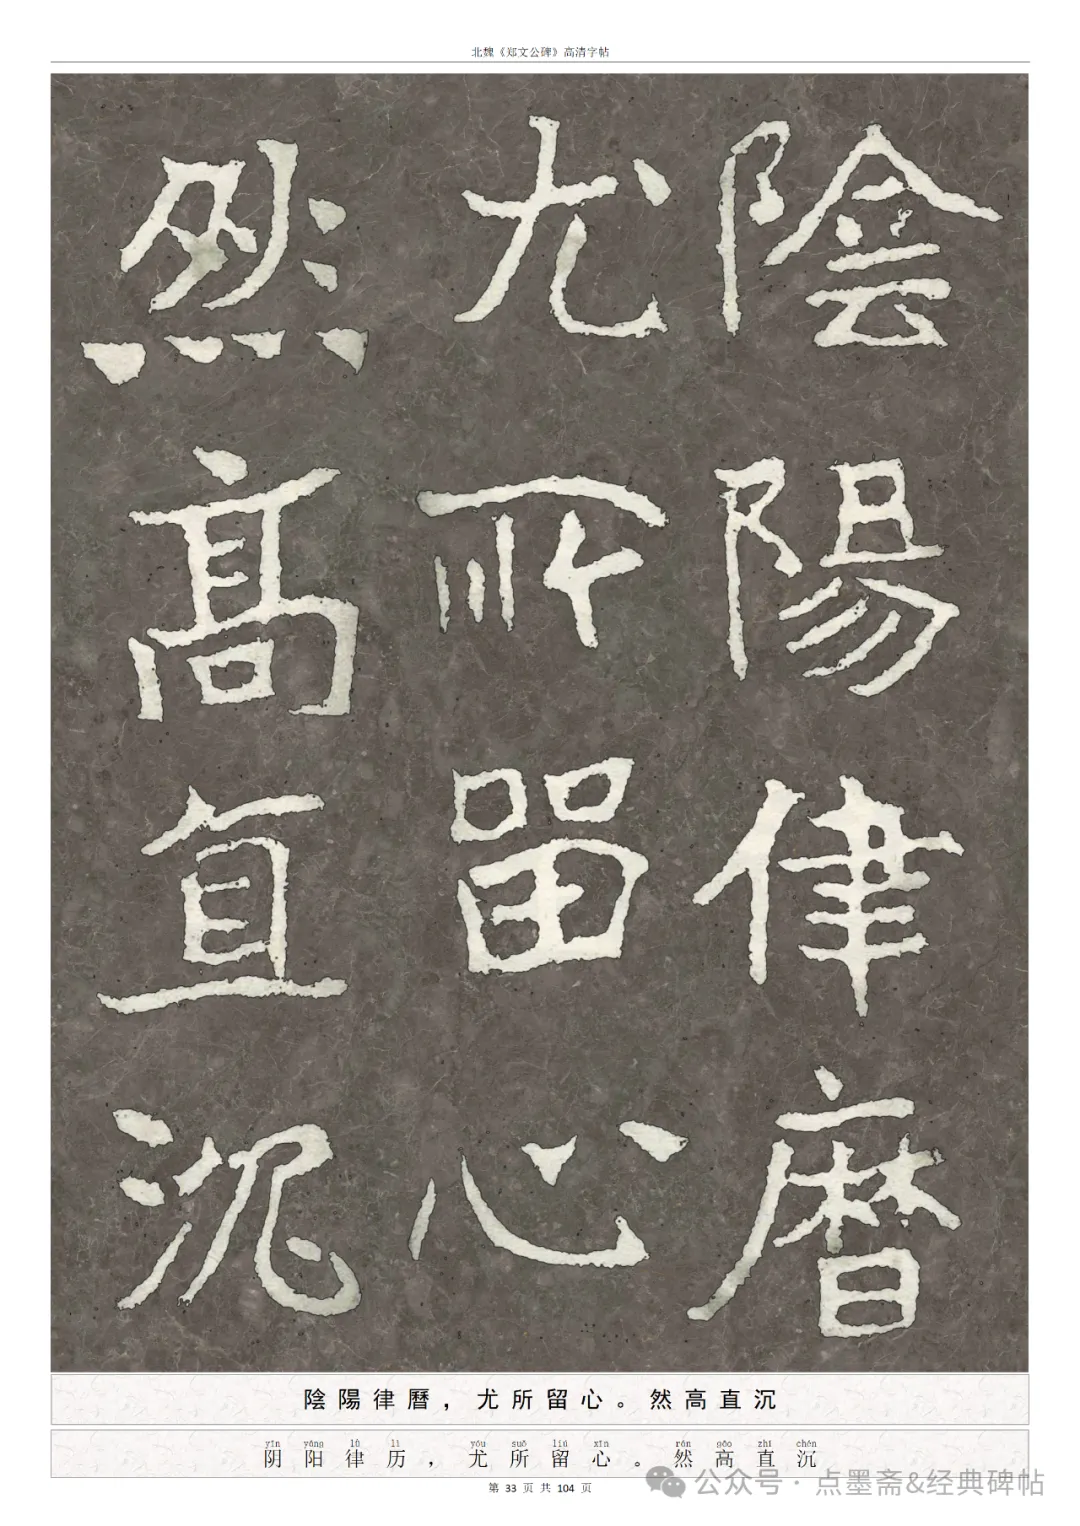 北魏《郑文公碑》高清字帖
陰陽律曆
尤所留心
然高直沉
陰陽律曆，尤所留心。然高直沉
yīn yáng lǜ lì yóu suǒ liú xīn rán gāo zhí chén
阴阳律历，尤所留心。然高直沉
第 33 页 共 104 页
公众号·点墨斋&经典碑帖